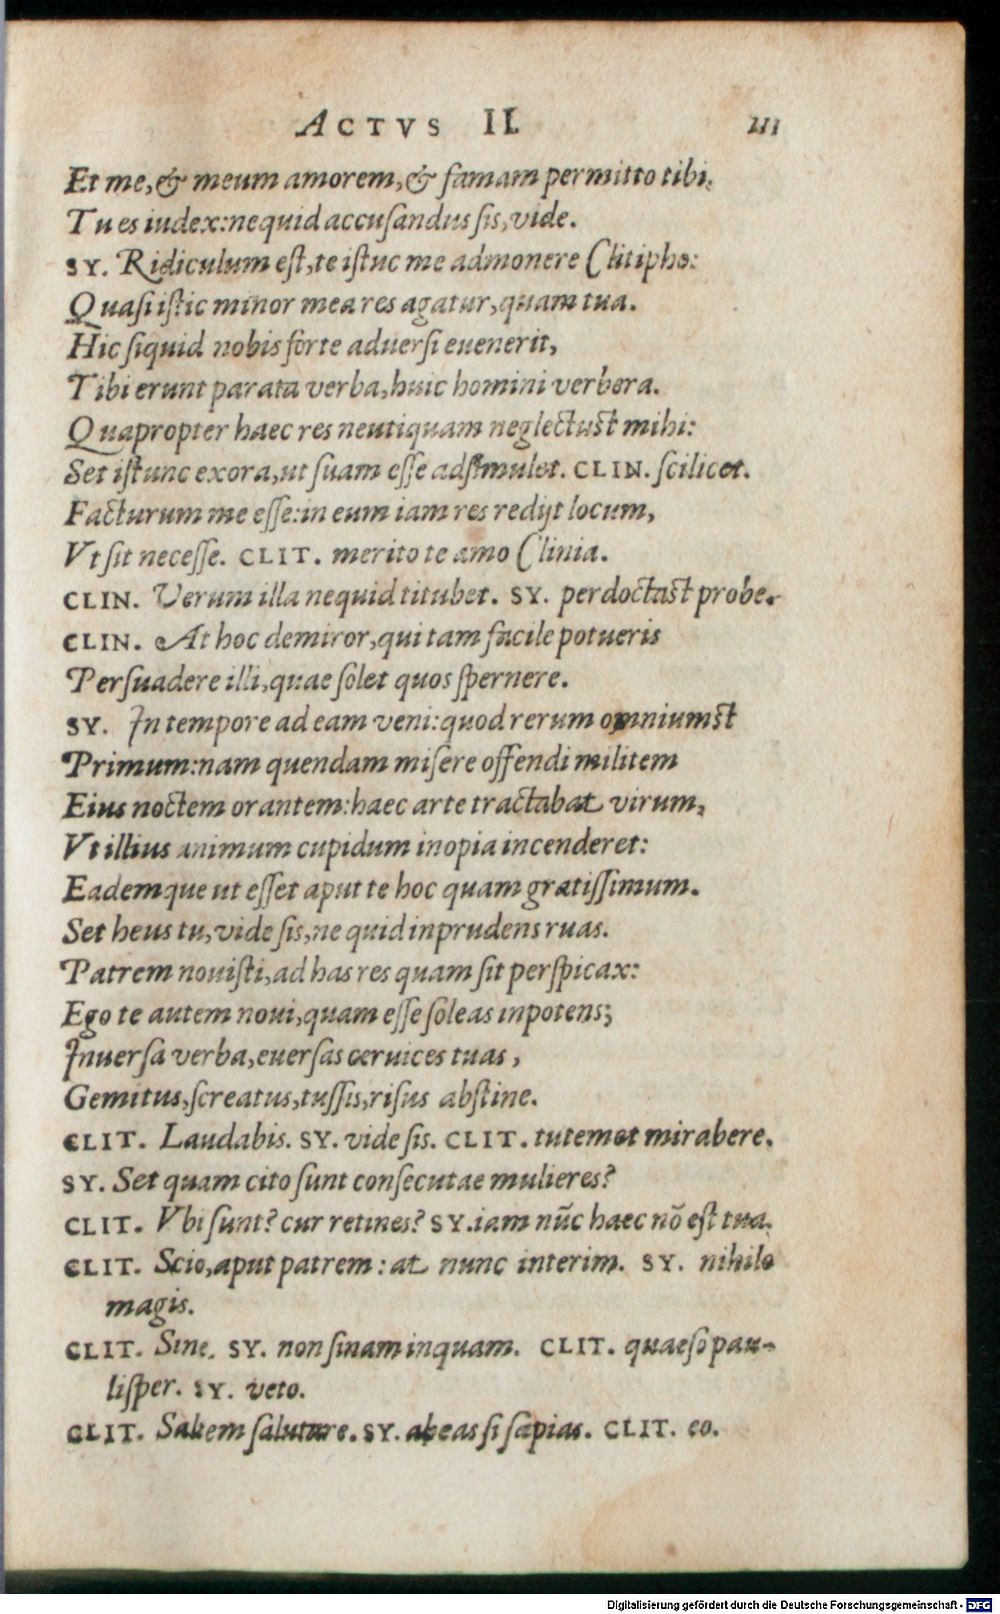 ACTVS II. 111
Et me, & meum amorem, & famam permitto tibi.
Tu es iudex: nequid accusandus sis, vide.
SY. Ridiculum est, te istuc me admonere Clitipho:
Quasi istic minor mea res agatur, quam tua.
Hic siquid nobis forte aduersi euenerit,
Tibi erunt parata verba, huic homini verbera.
Quapropter haec res neutiquam neglectust mihi:
Set istunc exora, ut suam esse adsimulet. CLIN. scilicet.
Facturum me esse: in eum iam res redijt locum,
Vt sit necesse. CLIT. merito te amo Clinia.
CLIN. Verum illa nequid titubet. SY. perdoctast probe.
CLIN. At hoc demiror, qui tam facile potueris
Persuadere illi, quae solet quos spernere.
SY. In tempore ad eam veni: quod rerum omniumst
Primum: nam quendam misere offendi militem
Eius noctem orantem: haec arte tractabat virum,
Vt illius animum cupidum inopia incenderet:
Eademque ut esset aput te hoc quam gratissimum.
Set heus tu, vide sis, ne quid inprudens ruas.
Patrem nouisti, ad has res quam sit perspicax:
Ego te autem noui, quam esse soleas inpotens;
Inuersa verba, euersas ceruices tuas,
Gemitus, screatus, tussis, risus abstine.
CLIT. Laudabis. SY. vide sis. CLIT. tutemet mirabere.
SY. Set quam cito sunt consecutae mulieres?
CLIT. Vbi sunt? cur retines? SY. iam nūc haec nō est tua.
CLIT. Scio, aput patrem: at nunc interim. SY. nihilo
magis.
CLIT. Sine. SY. non sinam inquam. CLIT. quaeso pau-
lisper. SY. veto.
CLIT. Saltem salutare. SY. abeas si sapias. CLIT. eo.
Digitalisierung gefördert durch die Deutsche Forschungsgemeinschaft - DFG